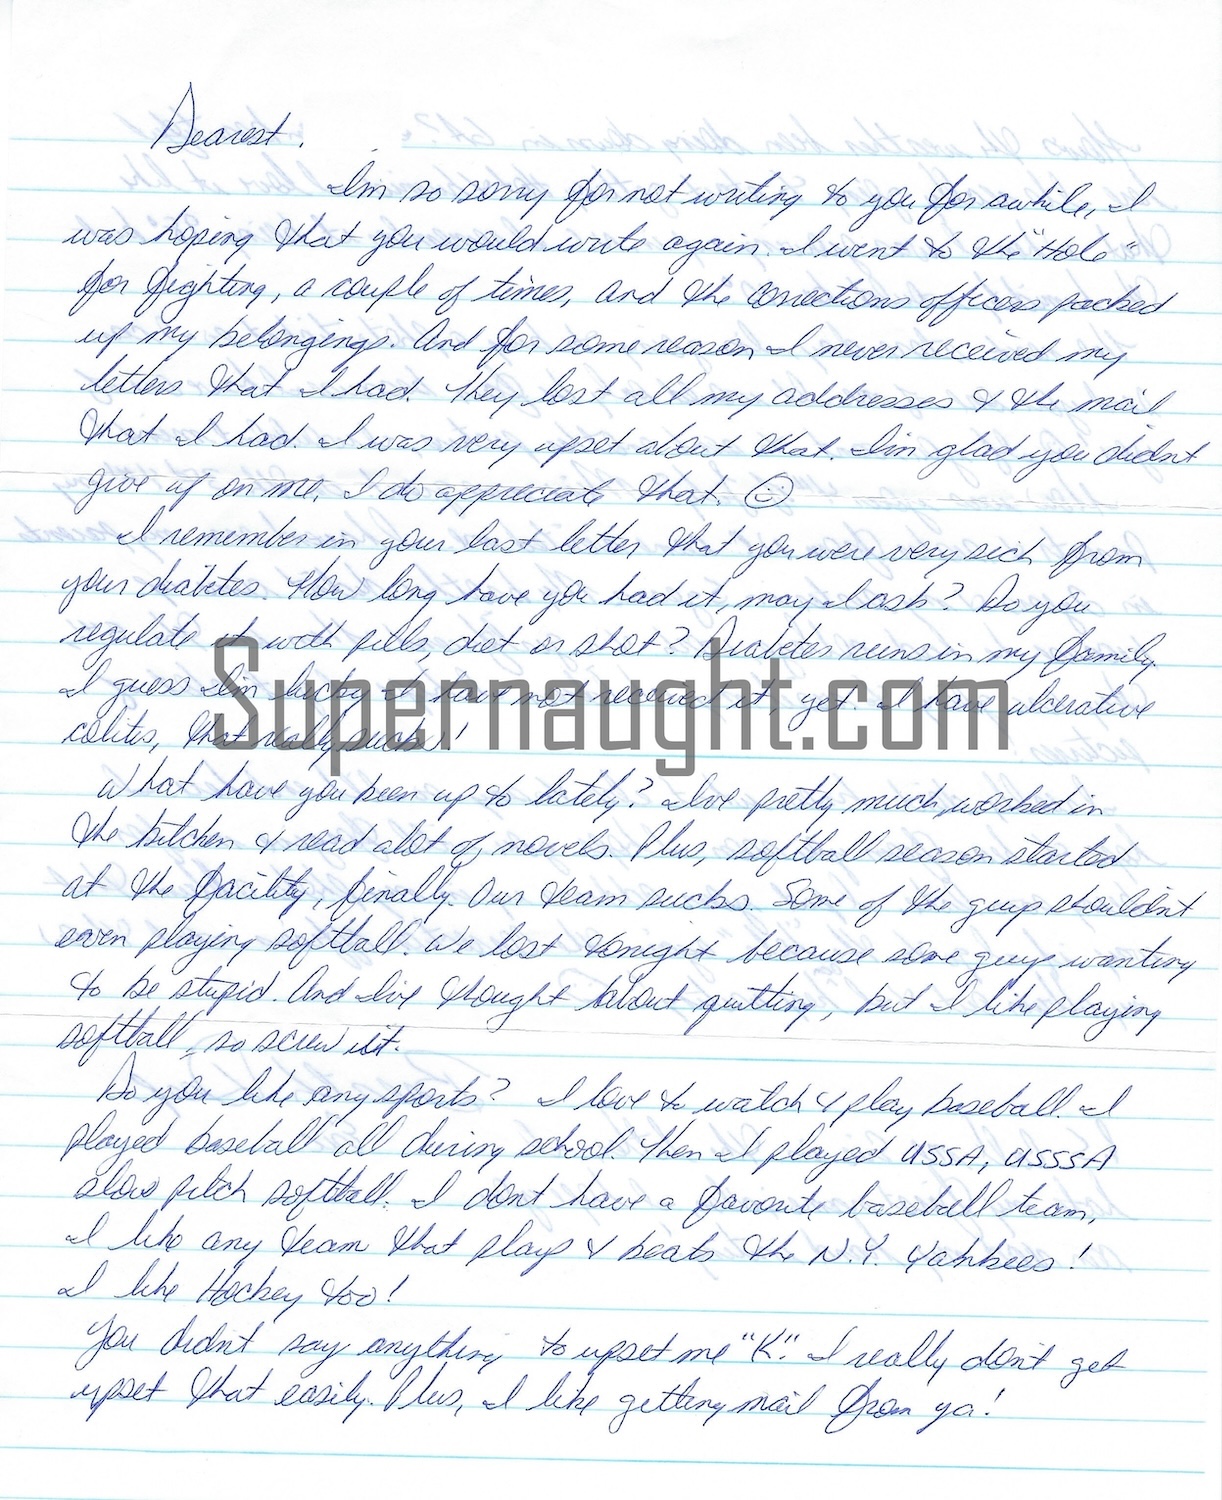 Dearest,
I'm so sorry for not writing to you for awhile, I
was hoping that you would write again. I went to the "Hole"
for fighting, a couple of times, and the corrections officers packed
up my belongings. And for some reason I never received my
letters that I had. They lost all my addresses & the mail
that I had. I was very upset about that. I'm glad you didn't
give up on me, I do appreciate that. ☺
I remember in your last letter that you were very sick from
your diabetes. How long have you had it, may I ask? Do you
regulate it with pills, diet or shot? Diabetes runs in my family.
I guess I'm lucky I have not received it, yet. I have ulcerative
colitis, that really sucks!
Supernaught.com
What have you been up to lately? I've pretty much worked in
the kitchen & read alot of novels. Plus, softball season started
at the facility, finally. Our team sucks. Some of the guys shouldn't
even playing softball. We lost tonight because some guys wanting
to be stupid. And I've thought about quitting, but I like playing
softball, so screw it.
Do you like any sports? I love to watch & play baseball. I
played baseball all during school. Then I played USSA, USSSA
slow pitch softball. I don't have a favorite baseball team,
I like any team that plays & beats the N.Y. Yankees!
I like Hockey too!
You didn't say anything to upset me "K". I really don't get
upset that easily. Plus, I like getting mail from ya!